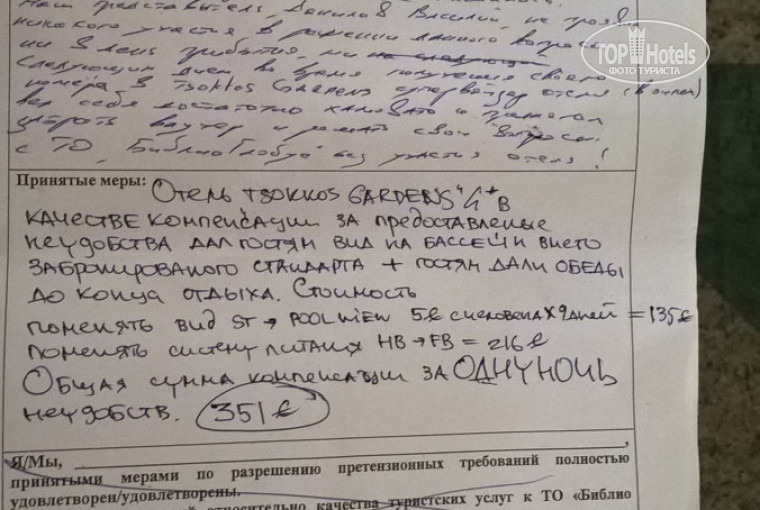 Наш представитель, Данилов Василий, не проявил
никакого участия в решении данного вопроса
ни в день прибытия, ни на следующий
следующим днем во время получения своего
номера в Tsokkos Gardens супервайзер отеля
вел себя достаточно хамовато и
ваучер и решать свои вопросы
с ТО "Библио Глобус" без участия отеля!
TOP Hotels
ФОТО ТУРИСТА
Принятые меры: Отель TSOKKOS GARDENS 4* В
КАЧЕСТВЕ КОМПЕНСАЦИИ ЗА ПРЕДОСТАВЛЕНЫЕ
НЕУДОБСТВА ДАЛ ГОСТЯМ ВИД НА БАССЕЙН ВМЕСТО
ЗАБРОНИРОВАНОГО СТАНДАРТА + ГОСТЯМ ДАЛИ ОБЕДЫ
ДО КОНЦА ОТДЫХА. СТОИМОСТЬ
ПОМЕНЯТЬ ВИД ST → POOL VIEW 5€ С ЧЕЛОВЕКА X 9 ДНЕЙ = 135€
ПОМЕНЯТЬ СИСТЕМУ ПИТАНИЯ HB → FB = 216€
ОБЩАЯ СУММА КОМПЕНСАЦИИ ЗА ОДНУ НОЧЬ
НЕУДОБСТВ. 351€
Я/Мы, ,
принятыми мерами по разрешению претензионных требований полностью
удовлетворен/удовлетворены.
относительно качества туристских услуг к ТО «Библио